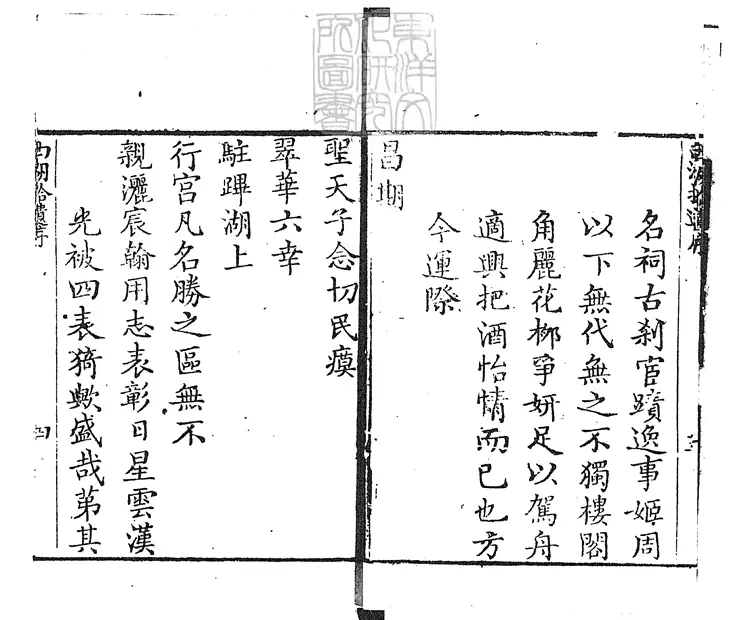 名祠古刹宦蹟逸事姬周
以下無代無之不獨樓閣
角麗花柳爭妍足以駕舟
適興把酒怡情而已也方
今運際
昌期
聖天子念切民瘼
翠華六幸
駐蹕湖上
行宫凡名勝之區無不
親灑宸翰用志表彰日星雲漢
光被四表猗歟盛哉第其
四